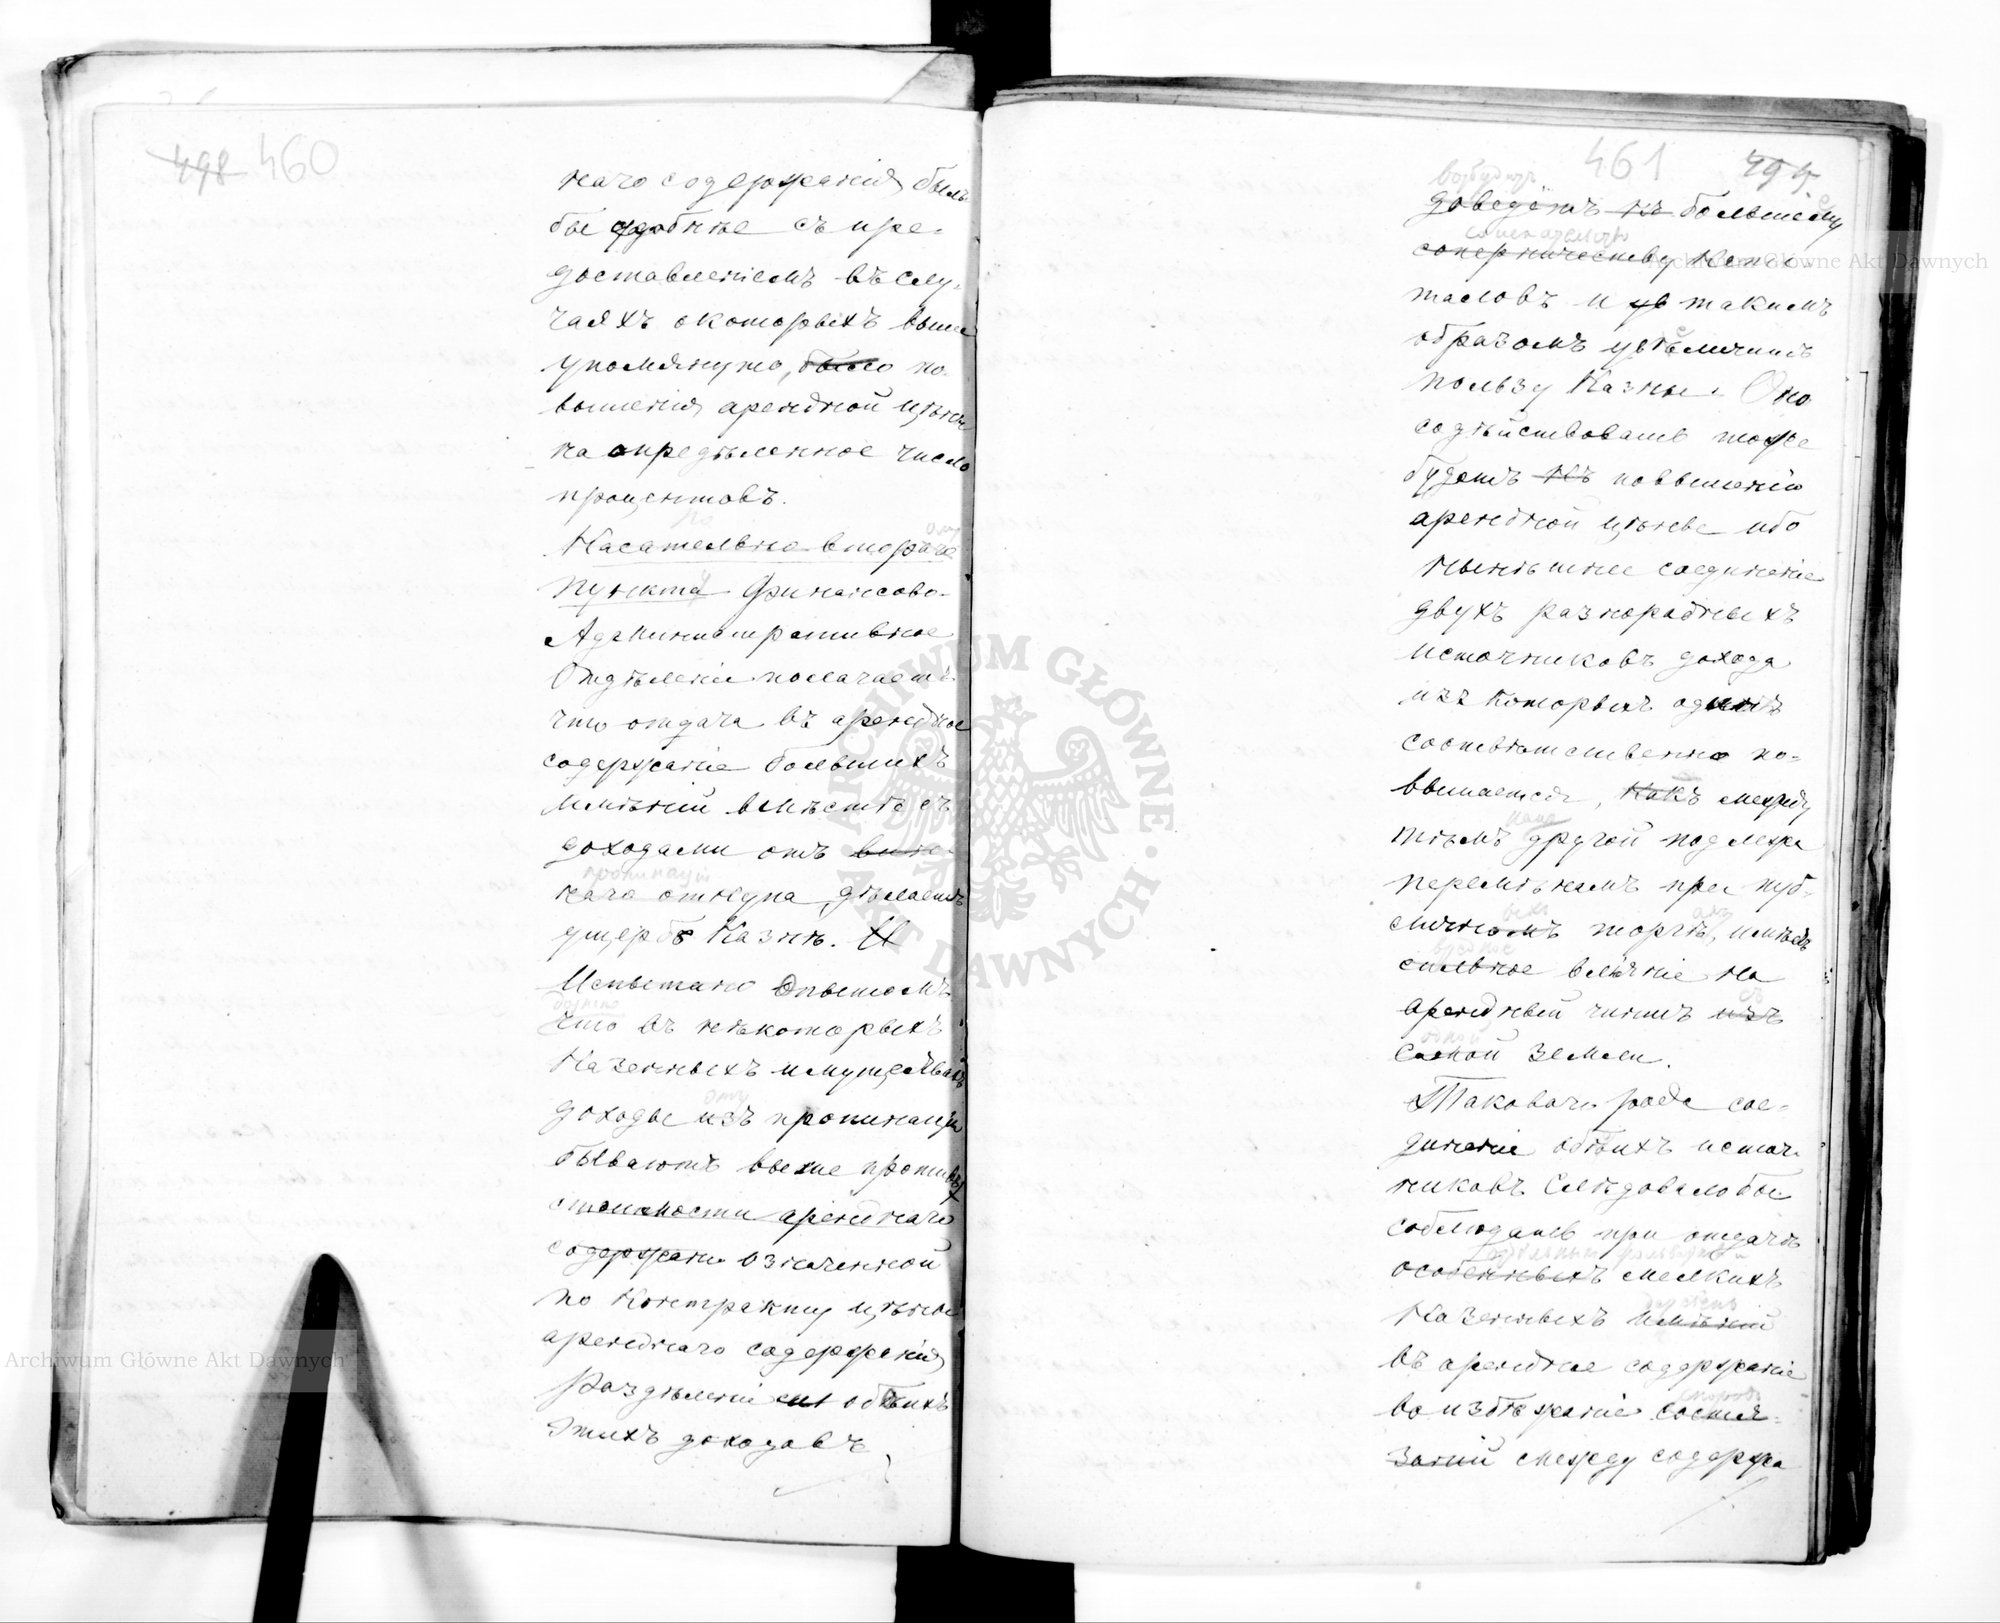 498 460
наго содержанія было
бы удобнѣе съ пре-
доставленіемъ въ слу-
чаяхъ о которыхъ выше
упомянуто, было по-
вышенія арендной цѣны
на опредѣленное число
процентовъ.
По
Касательно втораго
ому
пункта Финансово-
Административное
Отдѣленіе полагаетъ
что отдача въ арендное
содержаніе большихъ
имѣній вмѣстѣ съ
доходами отъ вин-
пропинаціи
наго откупа, дѣлаетъ
ущербъ Казнѣ. И
Испытано Опытомъ
что въ нѣкоторыхъ
Казенныхъ имуществахъ
доходы изъ пропинаціи
бываютъ выше противъ
стоимости аренднаго
содержанія означенной
по Контракту цѣны
аренднаго содержанія
Раздѣленіе обѣихъ
этихъ доходовъ
461 499
возбудитъ
доведетъ къ большему
соискательство
соперничеству
тасловъ и ув такимъ
образомъ увеличитъ
пользу Казны. Оно
содѣйствовать тоже
будетъ къ повышенію
арендной цѣны ибо
нынѣшнее соединеніе
двухъ разнородныхъ
источниковъ дохода
изъ которыхъ одинъ
соотвѣтственно по-
вышается, какъ между
тѣмъ другой подлежа
перемѣнамъ при пуб-
личномъ торгѣ, имѣетъ
вредное
сильное вліяніе на
арендный чиншъ изъ
съ
самой земли.
Таковаго рода сое-
диненіе обѣихъ источ-
никовъ Слѣдовало бы
соблюдать при отдачѣ
особенныхъ мелкихъ
Казенныхъ имѣній
въ арендное содержаніе
споровъ
во избѣжаніе состя-
заній между содержа
Archiwum Główne Akt Dawnych
Archiwum Główne Akt Dawnych
ARCHIWUM GŁÓWNE AKT DAWNYCH